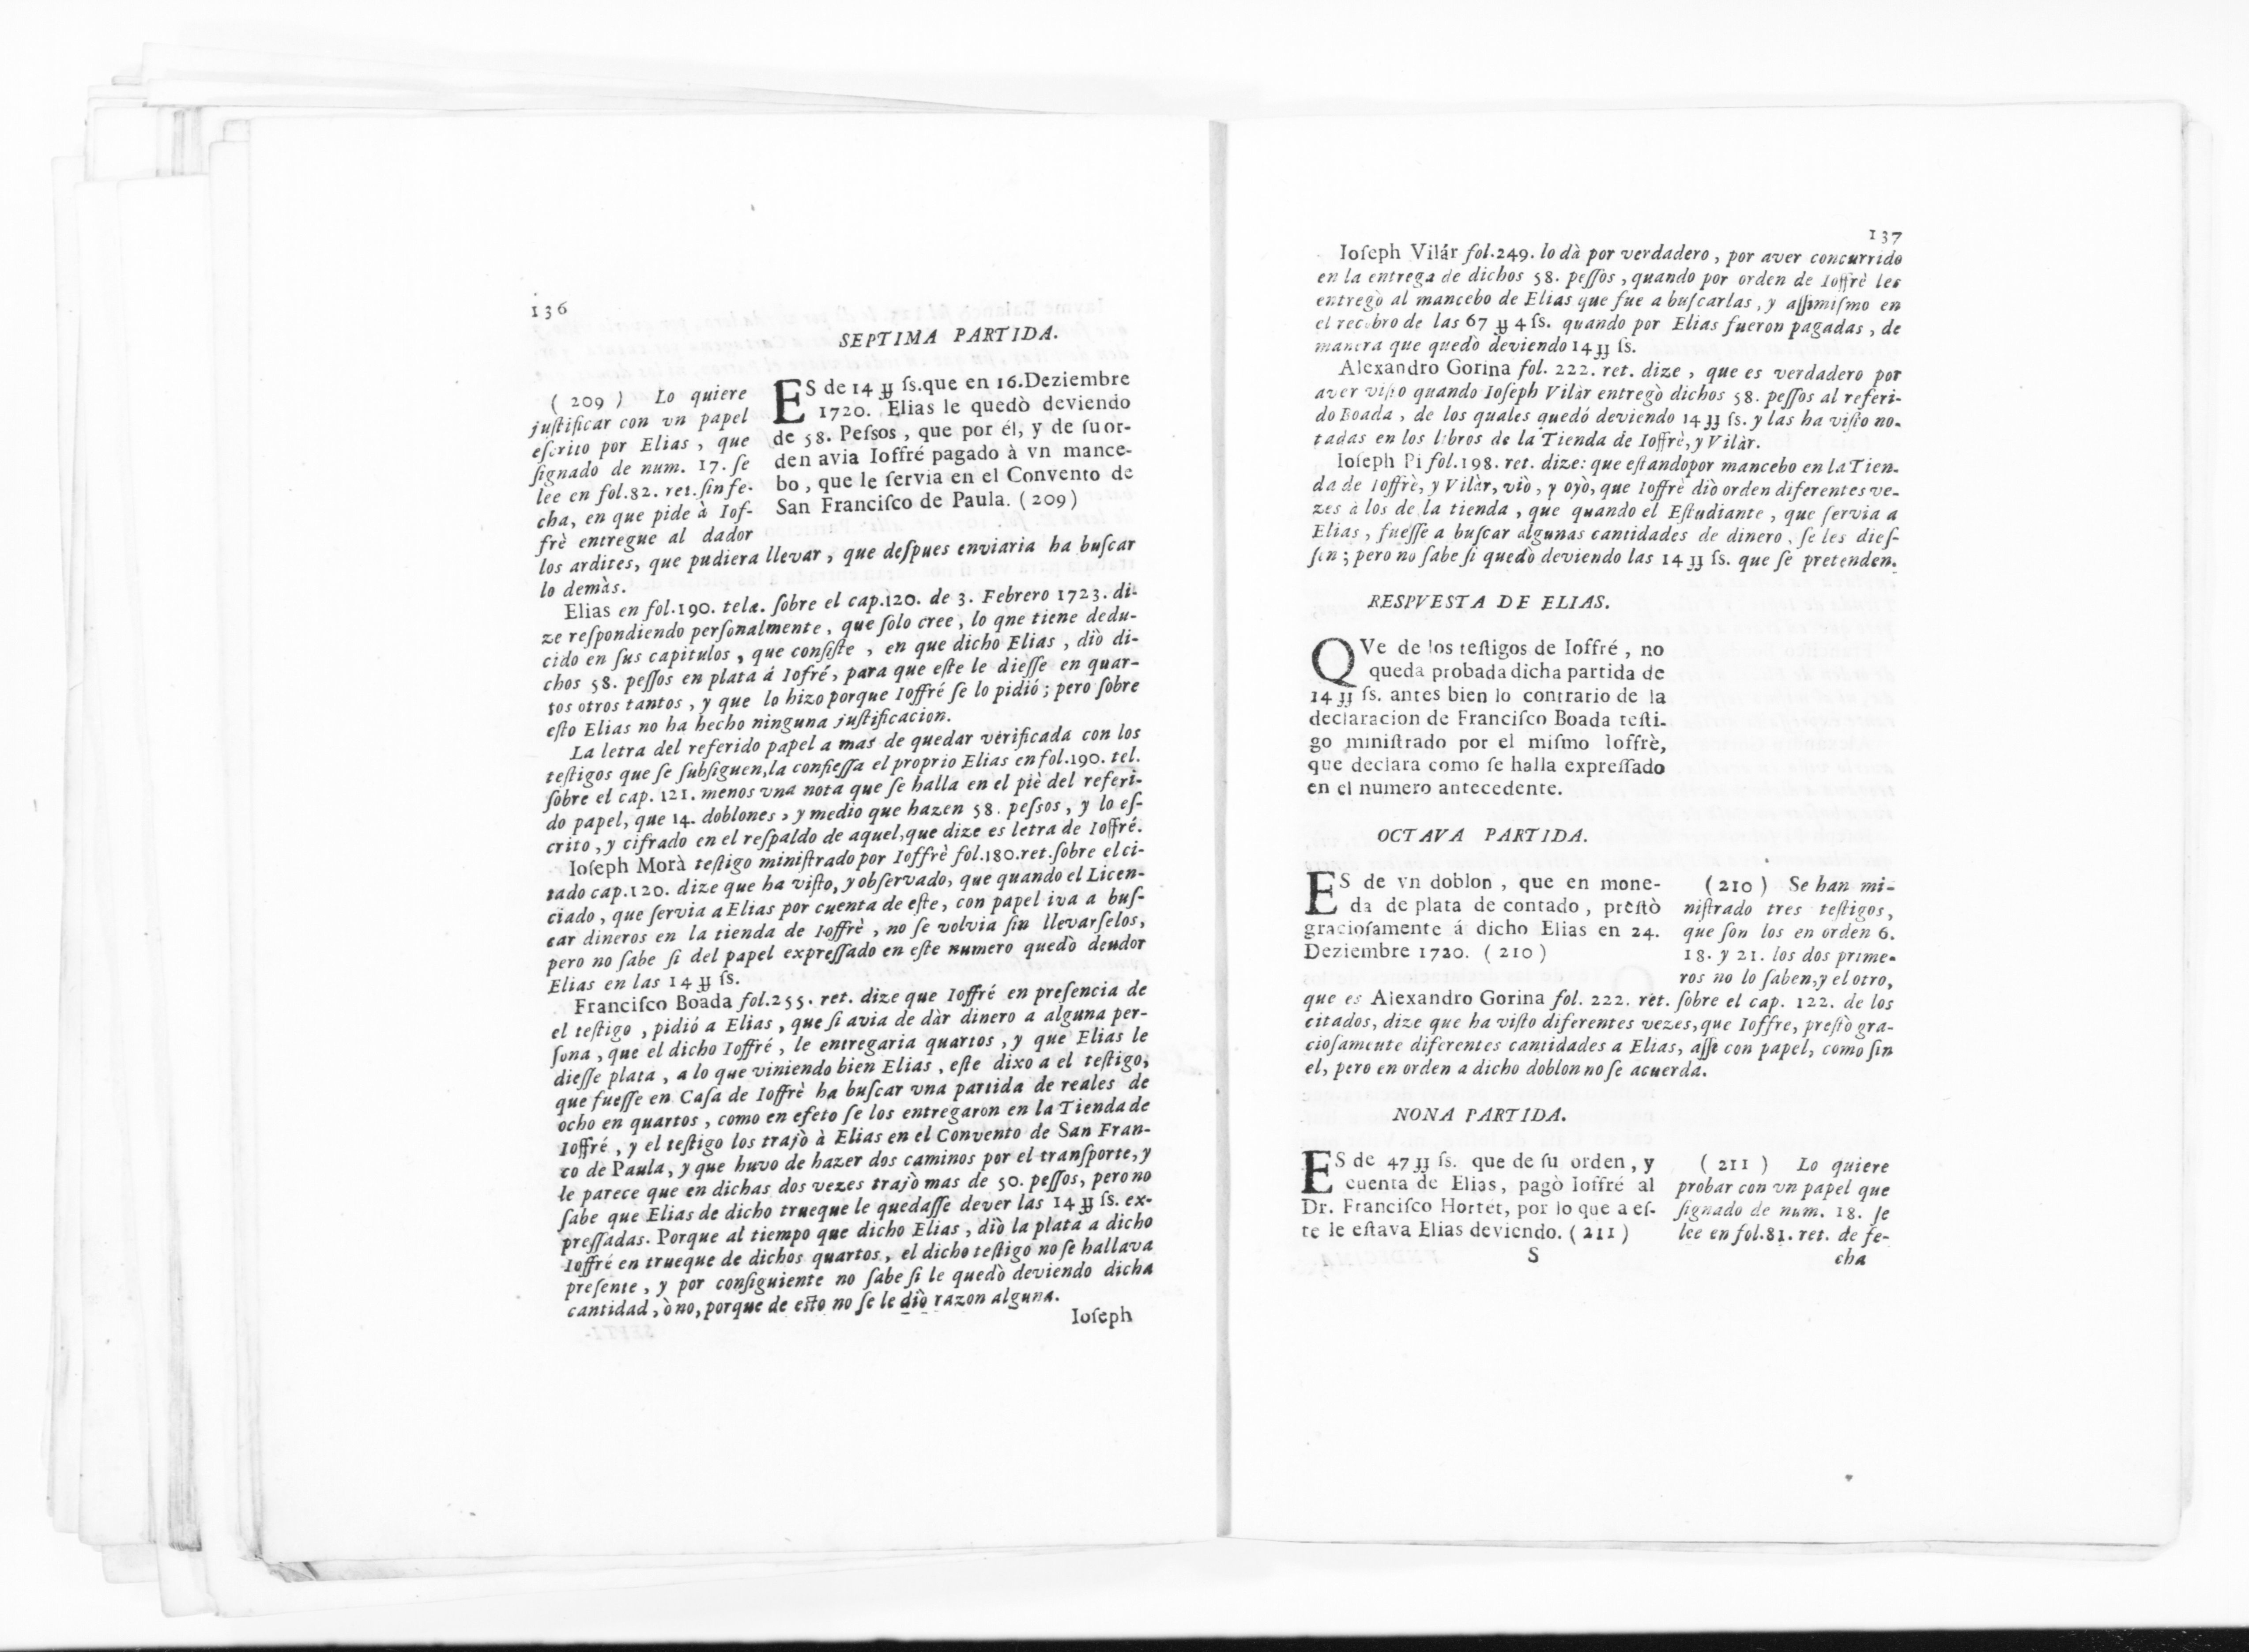 136
SEPTIMA PARTIDA.
ES de 14 ℔ ſs.que en 16.Deziembre
1720. Elias le quedò deviendo
de 58. Peſsos, que por él, y de ſu or-
den avia Ioffré pagado à vn mance-
bo, que le ſervia en el Convento de
San Franciſco de Paula. (209)
(209) Lo quiere
juſtificar con vn papel
eſcrito por Elias, que
ſignado de num. 17. ſe
lèe en fol.82. ret.ſin fe-
cha, en que pide à Iof-
frè entregue al dador
los ardites, que pudiera llevar, que deſpues enviaria ha buſcar
lo demàs.
Elias en fol.190. telæ. ſobre el cap.120. de 3. Febrero 1723. di-
ze reſpondiendo perſonalmente, que ſolo cree, lo qne tiene dedu-
cido en ſus capitulos, que conſiſte, en que dicho Elias, diò di-
chos 58. peſſos en plata á Iofré, para que eſte le dieſſe en quar-
tos otros tantos, y que lo hizo porque Ioffré ſe lo pidió; pero ſobre
eſto Elias no ha hecho ninguna juſtificacion.
La letra del referido papel a mas de quedar vèrificada con los
teſtigos que ſe ſubſiguen,la confieſſa el proprio Elias en fol.190. tel.
ſobre el cap. 121. menos vna nota que ſe halla en el piè del referi-
do papel, que 14. doblones, y medio que hazen 58. peſsos, y lo eſ-
crito, y cifrado en el reſpaldo de aquel,que dize es letra de Ioffré.
Ioſeph Morà teſtigo miniſtrado por Ioffrè fol.180.ret.ſobre el ci-
tado cap.120. dize que ha viſto, y obſervado, que quando el Licen-
ciado, que ſervia a Elias por cuenta de eſte, con papel iva a buſ-
car dineros en la tienda de Ioffrè, no ſe volvia ſin llevarſelos,
pero no ſabe ſi del papel expreſſado en eſte numero quedò deudor
Elias en las 14 ℔ ſs.
Franciſco Boada fol.255. ret. dize que Ioffré en preſencia de
el teſtigo, pidió a Elias, que ſi avia de dàr dinero a alguna per-
ſona, que el dicho Ioffré, le entregaria quartos, y que Elias le
dieſſe plata, a lo que viniendo bien Elias, eſte dixo a el teſtigo,
que fueſſe en Caſa de Ioffrè ha buſcar vna partida de reales de
ocho en quartos, como en efeto ſe los entregaron en la Tienda de
Ioffré, y el teſtigo los trajò à Elias en el Convento de San Fran-
co de Paula, y que huvo de hazer dos caminos por el tranſporte, y
le parece que en dichas dos vezes trajò mas de 50. peſſos, pero no
ſabe que Elias de dicho trueque le quedaſſe dever las 14 ℔ ſs. ex-
preſſadas. Porque al tiempo que dicho Elias, diò la plata a dicho
Ioffré en trueque de dichos quartos, el dicho teſtigo no ſe hallava
preſente, y por conſiguiente no ſabe ſi le quedò deviendo dicha
cantidad, ò no, porque de eſto no ſe le diò razon alguna.
Ioſeph
137
Ioſeph Vilár fol.249. lo dà por verdadero, por aver concurrido
en la entrega de dichos 58. peſſos, quando por orden de Ioffrè les
entregò al mancebo de Elias que fue a buſcarlas, y aſſimiſmo en
el recobro de las 67 ℔ 4 ſs. quando por Elias fueron pagadas, de
manera que quedò deviendo 14 ℔ ſs.
Alexandro Gorina fol. 222. ret. dize, que es verdadero por
aver viſto quando Ioſeph Vilàr entregò dichos 58. peſſos al referi-
do Boada, de los quales quedó deviendo 14 ℔ ſs. y las ha viſto no-
tadas en los libros de la Tienda de Ioffrè, y Vilàr.
Ioſeph Pi fol.198. ret. dize: que eſtando por mancebo en la Tien-
da de Ioffrè, y Vilàr, viò, y oyò, que Ioffrè diò orden diferentes ve-
zes à los de la tienda, que quando el Eſtudiante, que ſervia a
Elias, fueſſe a buſcar algunas cantidades de dinero, ſe les dieſ-
ſen; pero no ſabe ſi quedò deviendo las 14 ℔ ſs. que ſe pretenden.
RESPVESTA DE ELIAS.
QVe de los teſtigos de Ioffré, no
queda probada dicha partida de
14 ℔ ſs. antes bien lo contrario de la
declaracion de Franciſco Boada teſti-
go miniſtrado por el miſmo Ioffrè,
que declara como ſe halla expreſſado
en el numero antecedente.
OCTAVA PARTIDA.
ES de vn doblon, que en mone-
da de plata de contado, preſtò
gracioſamente á dicho Elias en 24.
Deziembre 1720. (210)
(210) Se han mi-
niſtrado tres teſtigos,
que ſon los en orden 6.
18. y 21. los dos prime-
ros no lo ſaben,y el otro,
que es Alexandro Gorina fol. 222. ret. ſobre el cap. 122. de los
citados, dize que ha viſto diferentes vezes,que Ioffre, preſtò gra-
cioſamente diferentes cantidades a Elias, aſſi con papel, como ſin
el, pero en orden a dicho doblon no ſe acuerda.
NONA PARTIDA.
ES de 47 ℔ ſs. que de ſu orden, y
cuenta de Elias, pagò Ioffré al
Dr. Franciſco Hortet, por lo que a eſ-
te le eſtava Elias deviendo. (211)
(211) Lo quiere
probar con vn papel que
ſignado de num. 18. ſe
lee en fol.81. ret. de fe-
S
cha